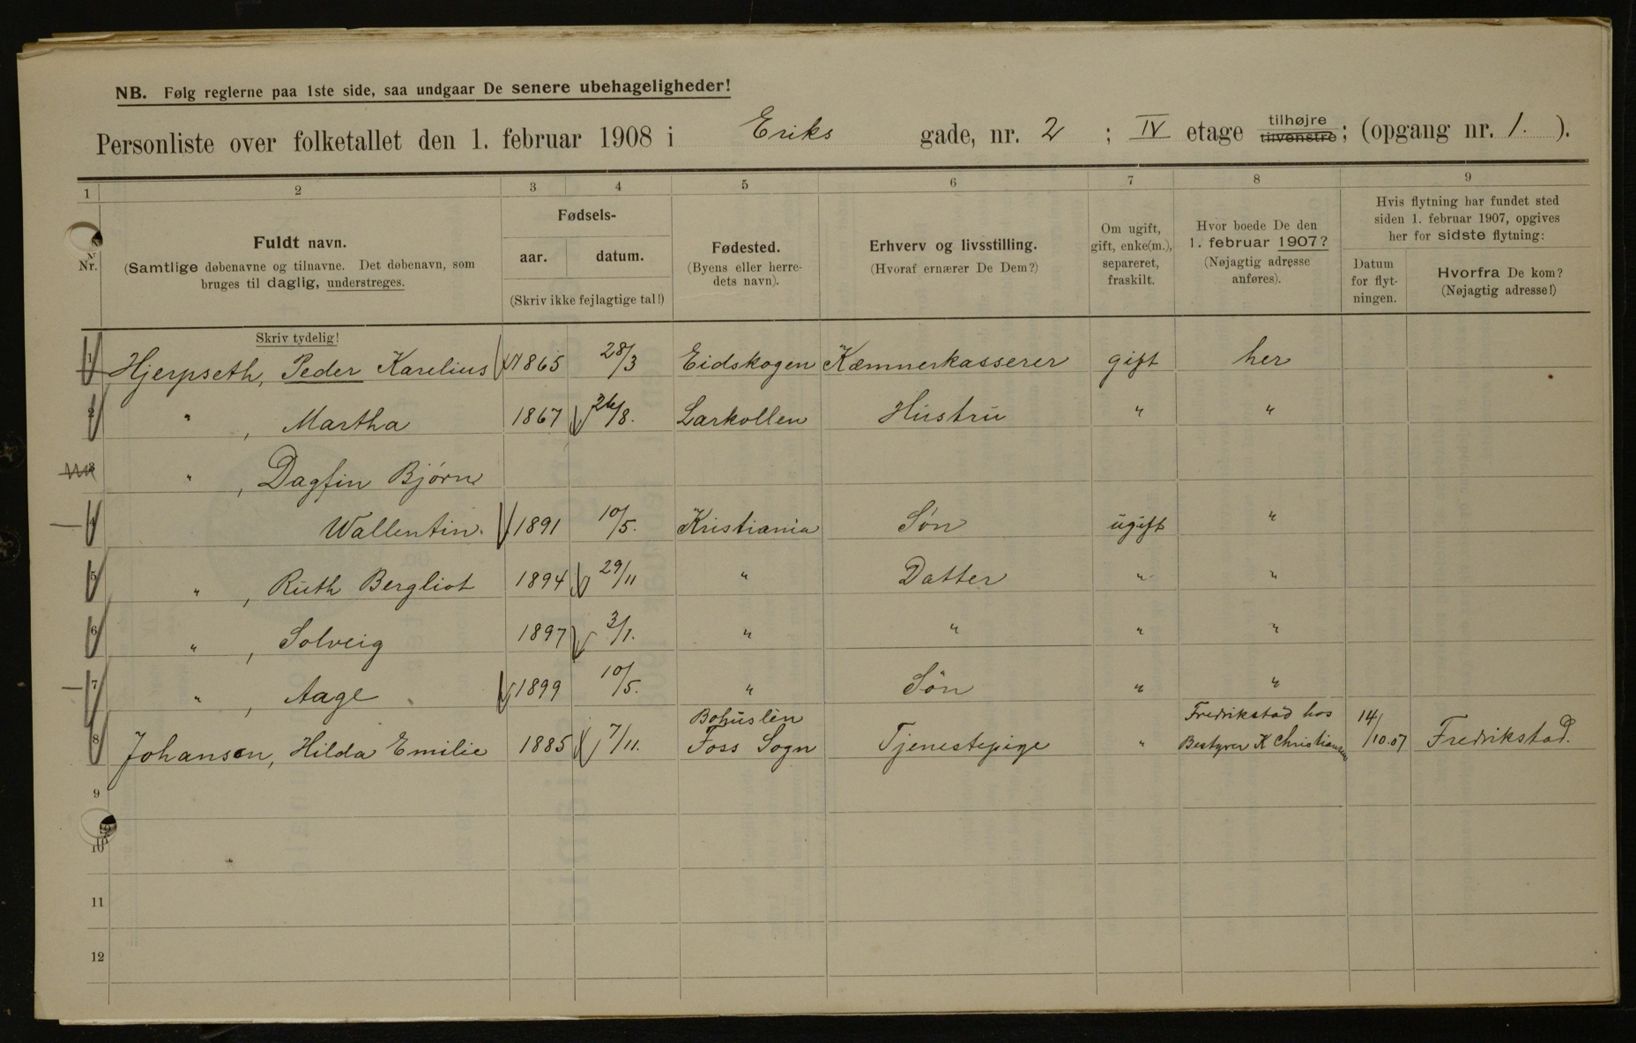 NB. Følg reglerne paa 1ste side, saa undgaar De senere ubehageligheder!
Personliste over folketallet den 1. februar 1908 i Eriks gade, nr. 2 ; IV etage tilhøjre tilvenstre; (opgang nr. 1. ).
1 2 3 4 5 6 7 8 9
Nr.
Fuldt navn.
(Samtlige døbenavne og tilnavne. Det døbenavn, som
bruges til daglig, understreges.
Fødsels-
aar. datum.
(Skriv ikke fejlagtige tal!)
Fødested.
(Byens eller herre-
dets navn).
Erhverv og livsstilling.
(Hvoraf ernærer De Dem?)
Om ugift,
gift, enke(m.),
separeret,
fraskilt.
Hvor boede De den
1. februar 1907?
(Nøjagtig adresse
anføres).
Hvis flytning har fundet sted
siden 1. februar 1907, opgives
her for sidste flytning:
Datum
for flyt-
ningen.
Hvorfra De kom?
(Nøjagtig adresse!)
Skriv tydelig!
1 Hjerpseth, Peder Karelius 1865 28/3 Eidskogen Kæmnerkasserer gift her
2 " , Martha 1867 26/8. Larkollen Hustru " "
3 " , Dagfin Bjørn
4 Wallentin. 1891 10/5. Kristiania Søn ugift "
5 " , Ruth Bergliot 1894 29/11 " Datter " "
6 " , Solveig 1897 3/1. " " " "
7 " , Aage 1899 10/5. " Søn " "
Bohuslèn Fredrikstad hos 14/
8 Johansen, Hilda Emilie 1885 7/11. Foss Sogn Tjenestepige " Bestyrer K Christiansen /10.07 Fredrikstad.
9
10
11
12